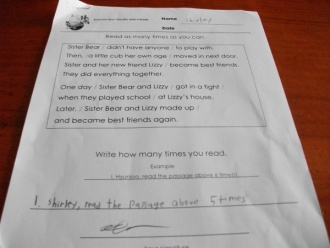 Name Shirley
Date
Read as many times as you can.
Sister Bear / didn't have anyone / to play with.
Then, / a little cub her own age / moved in next door.
Sister and her new friend Lizzy / become best friends.
They did everything together.
One day / Sister Bear and Lizzy / got in a fight /
when they played school / at Lizzy's house.
Later, / Sister Bear and Lizzy made up /
and became best friends again.
Write how many times you read.
Example
I, Hyunseo, read the passage above 6 times.
I, Shirley, read the passage above 5 times